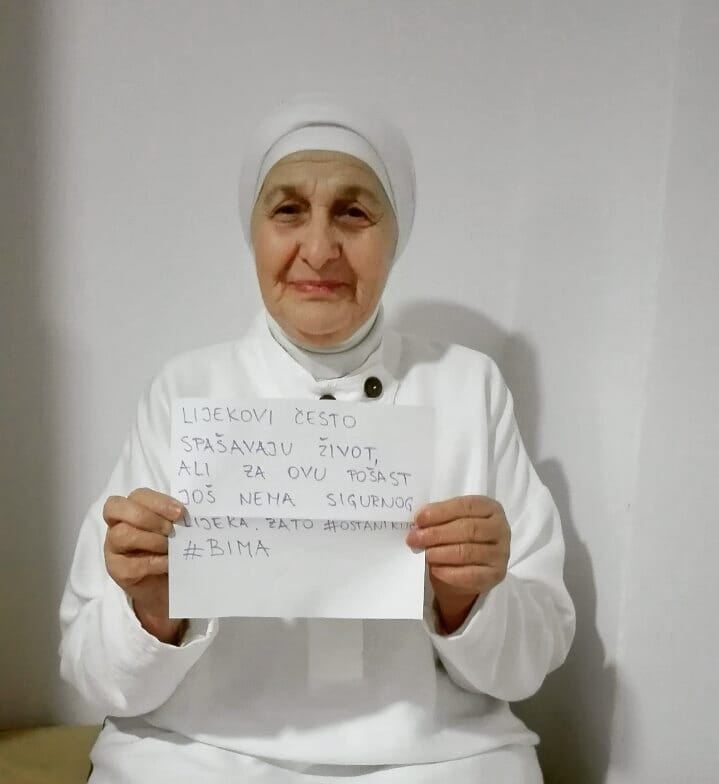 LIJEKOVI ČESTO
SPAŠAVAJU ŽIVOT,
ALI ZA OVU POŠAST
JOŠ NEMA SIGURNOG
LIJEKA. ZATO
#BIMA